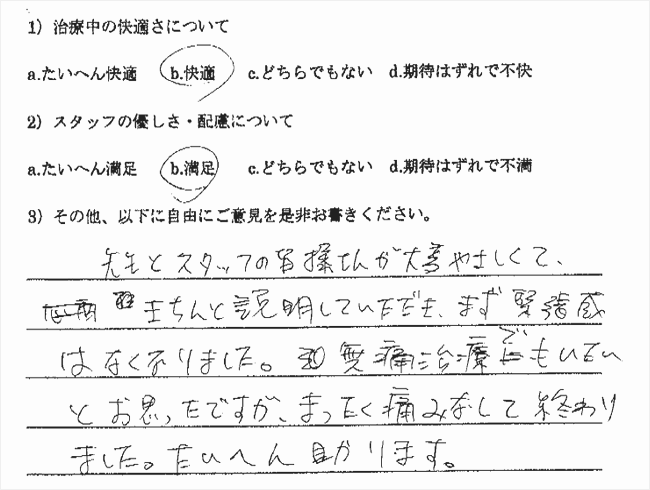 1）治療中の快適さについて
a.たいへん快適　b.快適　c.どちらでもない　d.期待はずれで不快
2）スタッフの優しさ・配慮について
a.たいへん満足　b.満足　c.どちらでもない　d.期待はずれで不満
3）その他、以下に自由にご意見を是非お書きください。
先生とスタッフの皆様さんが大変やさしくて、
きちんと説明していただき、まず緊張感
はなくなりました。無痛治療でもいたい
とお思ったですが、まったく痛みなしで終わり
ました。たいへん助かります。